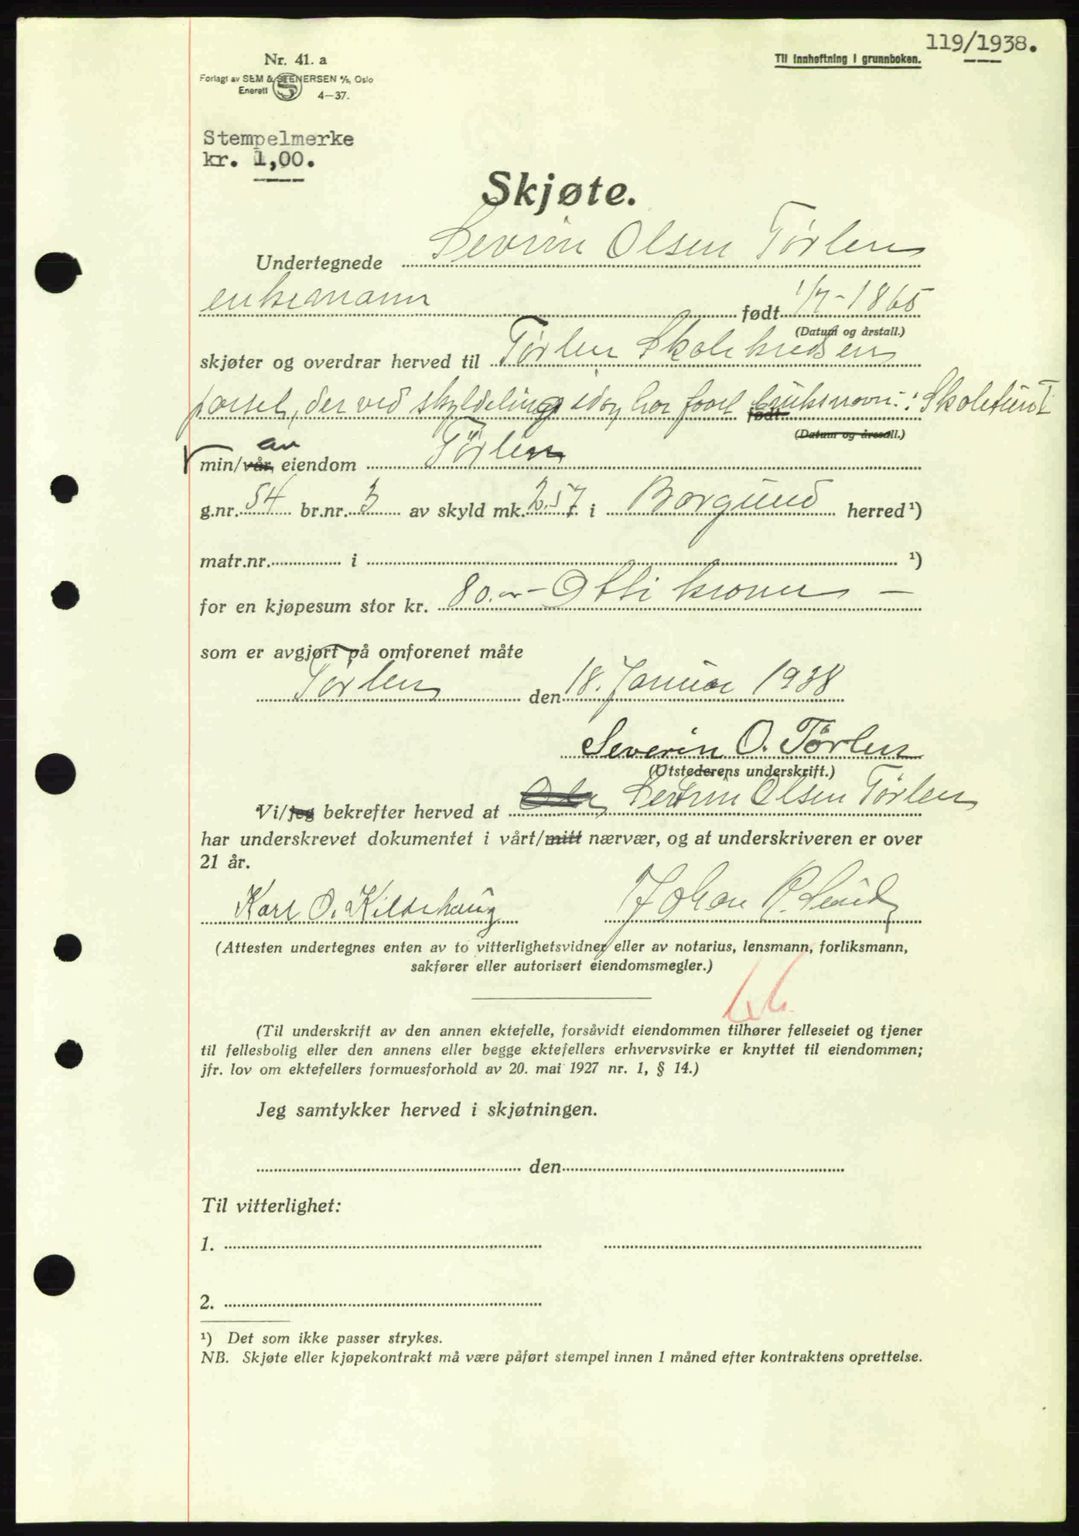 119/1938.
Til innheftning i grunnboken.
Nr. 41. a
Forlagt av SEM & STENERSEN A/S, Oslo
Enerett S 4—37.
Stempelmerke
kr. 1,00.
Skjøte.
Undertegnede Sevrin Olsen Tørlen
enkemann født 1/7-1865
(Datum og årstall.)
skjøter og overdrar herved til Tørlen Skolekredsen
parsel, der ved skyldeling idag har faaet født bruksnavn: Skoletun
(Datum og årstall.)
av
min/vår eiendom Tørlen
g.nr. 54 br.nr. 3 av skyld mk. 2.57 i Borgund herred ¹)
matr.nr. i ¹)
for en kjøpesum stor kr. 80.- Otti kroner —
som er avgjort på omforenet måte
Tørlen den 18. Januar 1938
Severin O. Tørlen
(Utstederens underskrift.)
Vi/jeg bekrefter herved at Sevrin Olsen Tørlen
har underskrevet dokumentet i vårt/mitt nærvær, og at underskriveren er over
21 år.
Karl O. Kildehaug Johan P.
(Attesten undertegnes enten av to vitterlighetsvidner eller av notarius, lensmann, forliksmann,
sakfører eller autorisert eiendomsmegler.)
(Til underskrift av den annen ektefelle, forsåvidt eiendommen tilhører felleseiet og tjener
til fellesbolig eller den annens eller begge ektefellers erhvervsvirke er knyttet til eiendommen;
jfr. lov om ektefellers formuesforhold av 20. mai 1927 nr. 1, § 14.)
Jeg samtykker herved i skjøtningen.
den
Til vitterlighet:
1.
2.
¹) Det som ikke passer strykes.
NB. Skjøte eller kjøpekontrakt må være påført stempel innen 1 måned efter kontraktens oprettelse.